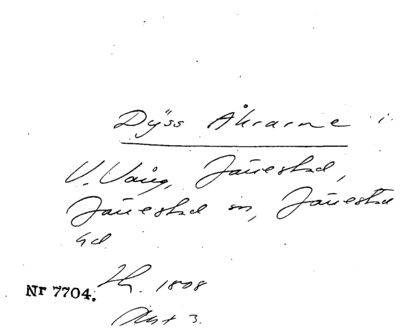 Dÿss Åkrarne i
V. Vång, Järrestad,
Järrestad sn, Järrestad
hd
Nr 7704. Lh. 1808
Akt 3.